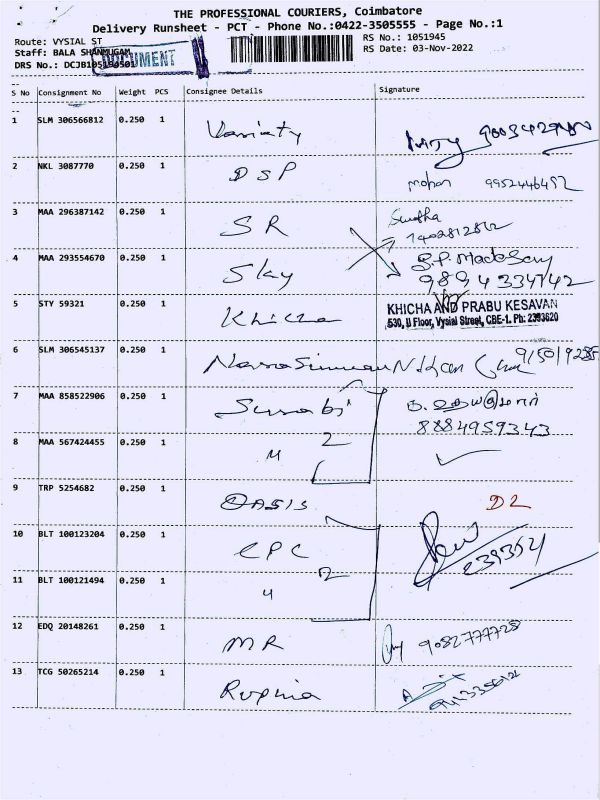 THE PROFESSIONAL COURIERS, Coimbatore
Delivery Runsheet - PCT - Phone No.:0422-3505555 - Page No.:1
Route: VYSIAL ST
RS No.: 1051945
Staff: BALA SHANMUGAM
RS Date: 03-Nov-2022
DOCUMENT
DRS No.: DCJB105194501
S No Consignment No Weight PCS Consignee Details Signature
1 SLM 306566812 0.250 1 Variaty
2 NKL 3087770 0.250 1 DSP mohan 9952446492
3 MAA 296387142 0.250 1 SR
4 MAA 293554670 0.250 1 Sky 9894334742
5 STY 59321 0.250 1 Khicha KHICHA AND PRABU KESAVAN
530, II Floor, Vysial Street, CBE-1. Ph: 2393620
6 SLM 306545137 0.250 1
7 MAA 858522906 0.250 1 Surabi
8884959343
8 MAA 567424455 0.250 1 〃 2
9 TRP 5254682 0.250 1 OASIS D2
10 BLT 100123204 0.250 1 CPC
11 BLT 100121494 0.250 1 〃 2
12 EDQ 20148261 0.250 1 MR 9082777728
13 TCG 50265214 0.250 1